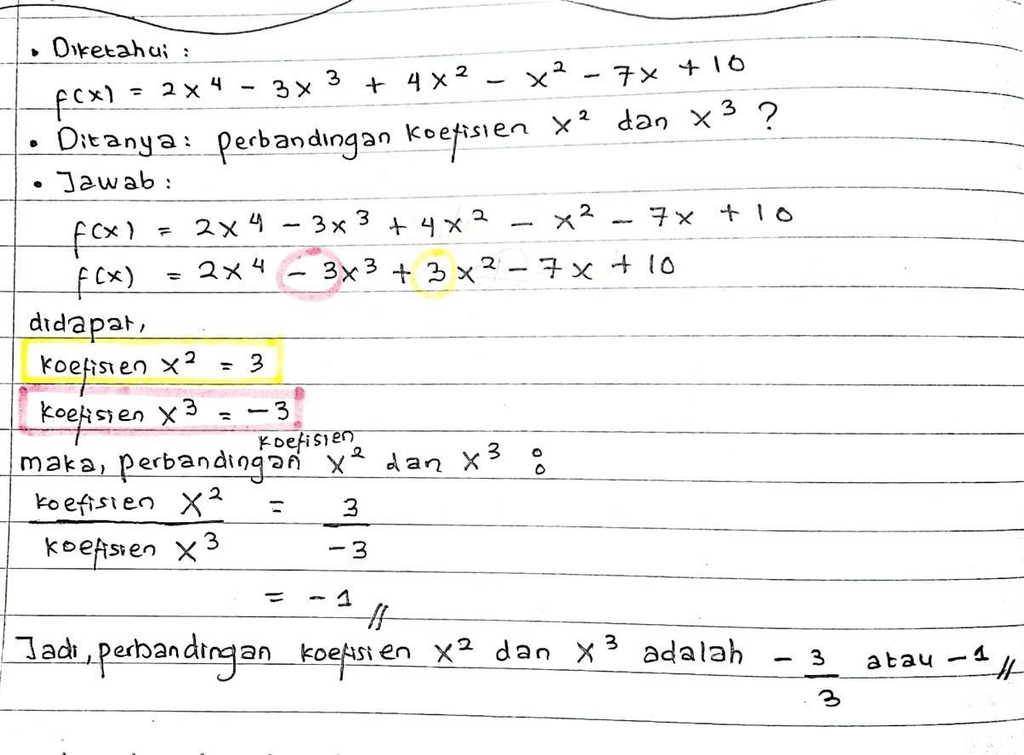 • Diketahui :
f(x) = 2x⁴ - 3x³ + 4x² - x² - 7x + 10
• Ditanya: perbandingan koefisien x² dan x³ ?
• Jawab :
f(x) = 2x⁴ - 3x³ + 4x² - x² - 7x + 10
f(x) = 2x⁴ - 3x³ + 3x² - 7x + 10
didapat,
koefisien x² = 3
koefisien x³ = -3
koefisien
maka, perbandingan x² dan x³ :
koefisien x² = 3
koefisien x³ -3
= -1 //
Jadi, perbandingan koefisien x² dan x³ adalah - 3 atau -1 //
3